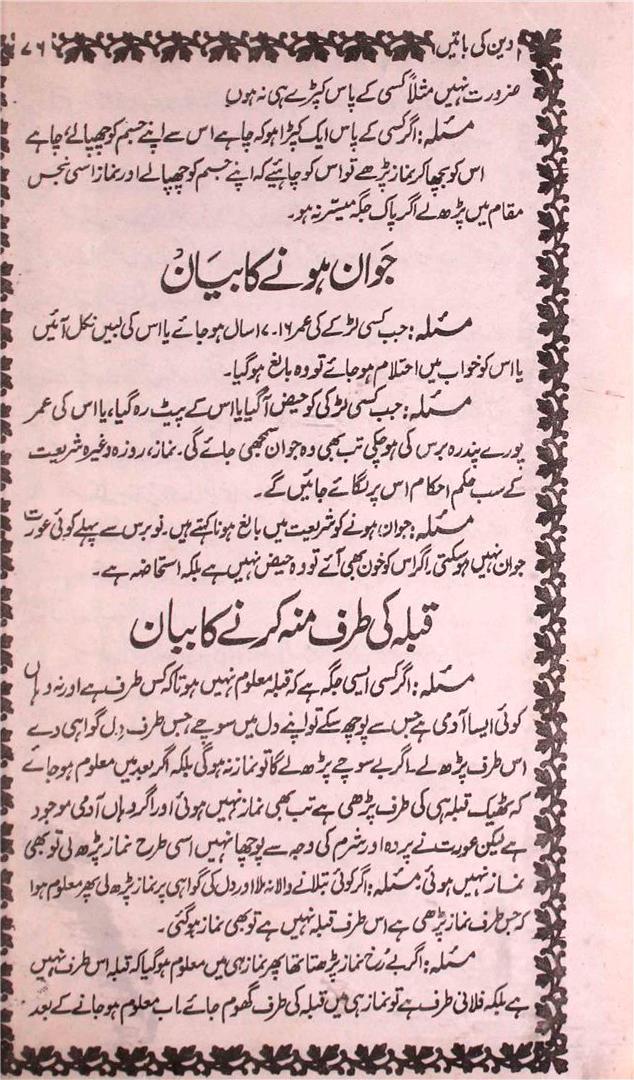 دین کی باتیں ۷۶
ضرورت نہیں مثلاً کسی کے پاس کپڑے ہی نہ ہوں
مسئلہ: اگر کسی کے پاس ایک کپڑا ہو کہ چاہے اس سے اپنے جسم کو چھپالے، چاہے
اس کو بچھا کر نماز پڑھے تو اس کو چاہئیے کہ اپنے جسم کو چھپالے اور نماز اسی نجس
مقام میں پڑھ لے اگر پاک جگہ میسّر نہ ہو۔
جَوان ہونے کا بیَان
مسئلہ: جب کسی لڑکے کی عمر ۱۶۔۱۷ سال ہو جائے یا اس کی لبیں نکل آئیں
یا اس کو خواب میں احتلام ہو جائے تو وہ بالغ ہو گیا۔
مسئلہ: جب کسی لڑکی کو حیض آگیا یا اس کے پیٹ رہ گیا، یا اس کی عمر
پورے پندرہ برس کی ہو چکی تب بھی وہ جوان سمجھی جائے گی۔ نماز، روزہ وغیرہ شریعت
کے سب حکم احکام اس پر لگائے جائیں گے۔
مسئلہ: جوان ہونے کو شریعت میں بالغ ہونا کہتے ہیں۔ نو برس سے پہلے کوئی عورت
جوان نہیں ہو سکتی۔ اگر اس کو خون بھی آئے تو وہ حیض نہیں ہے بلکہ استحاضہ ہے۔
قبلہ کی طرف منہ کرنے کا بیان
مسئلہ: اگر کسی ایسی جگہ ہے کہ قبلہ معلوم نہیں ہوتا کہ کس طرف ہے اور نہ وہاں
کوئی ایسا آدمی ہے جس سے پوچھ سکے تو اپنے دل میں سوچے، جس طرف دِل گواہی دے
اس طرف پڑھ لے۔ اگر بے سوچے پڑھ لے گا تو نماز نہ ہوگی بلکہ اگر بعد میں معلوم ہو جائے
کہ ٹھیک قبلہ ہی کی طرف پڑھی ہے تب بھی نماز نہیں ہوئی اور اگر وہاں آدمی موجود
ہے لیکن عورت نے پردہ اور شرم کی وجہ سے پوچھا نہیں اسی طرح نماز پڑھ لی تو بھی
نماز نہیں ہوئی۔ مسئلہ: اگر کوئی بتلانے والا نہ ملا اور دل کی گواہی پر نماز پڑھ لی پھر معلوم ہوا
کہ جس طرف نماز پڑھی ہے اس طرف قبلہ نہیں ہے تو بھی نماز ہو گئی۔
مسئلہ: اگر بے رُخ نماز پڑھتا تھا پھر نماز ہی میں معلوم ہو گیا کہ قبلہ اس طرف نہیں
ہے بلکہ فلانی طرف ہے تو نماز ہی میں قبلہ کی طرف گھوم جائے۔ اب معلوم ہو جانے کے بعد